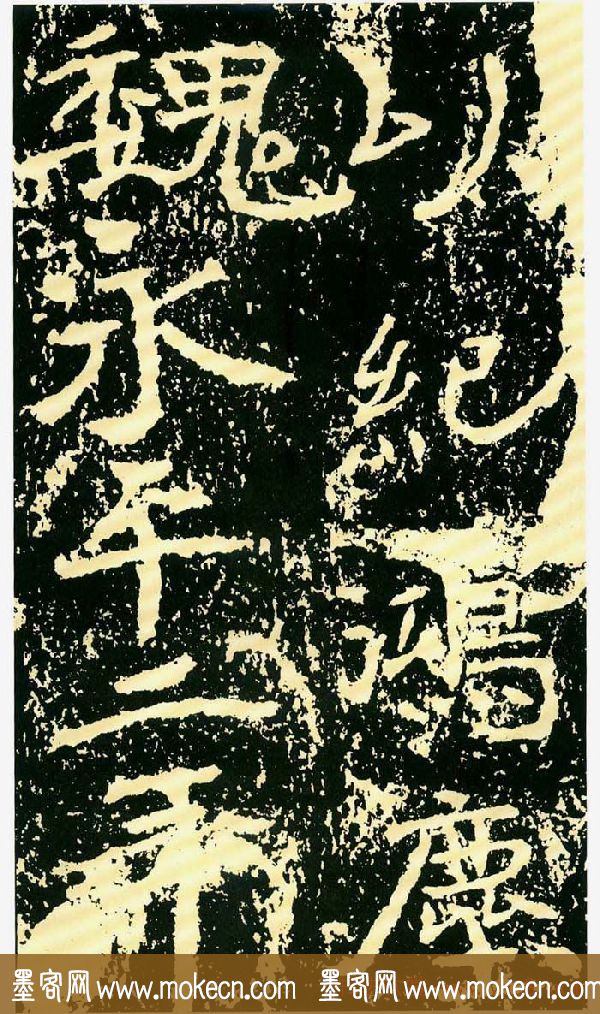 以紀鴻塵
魏永平二年
墨客网 www.mokecn.com 墨客网 www.mokecn.com